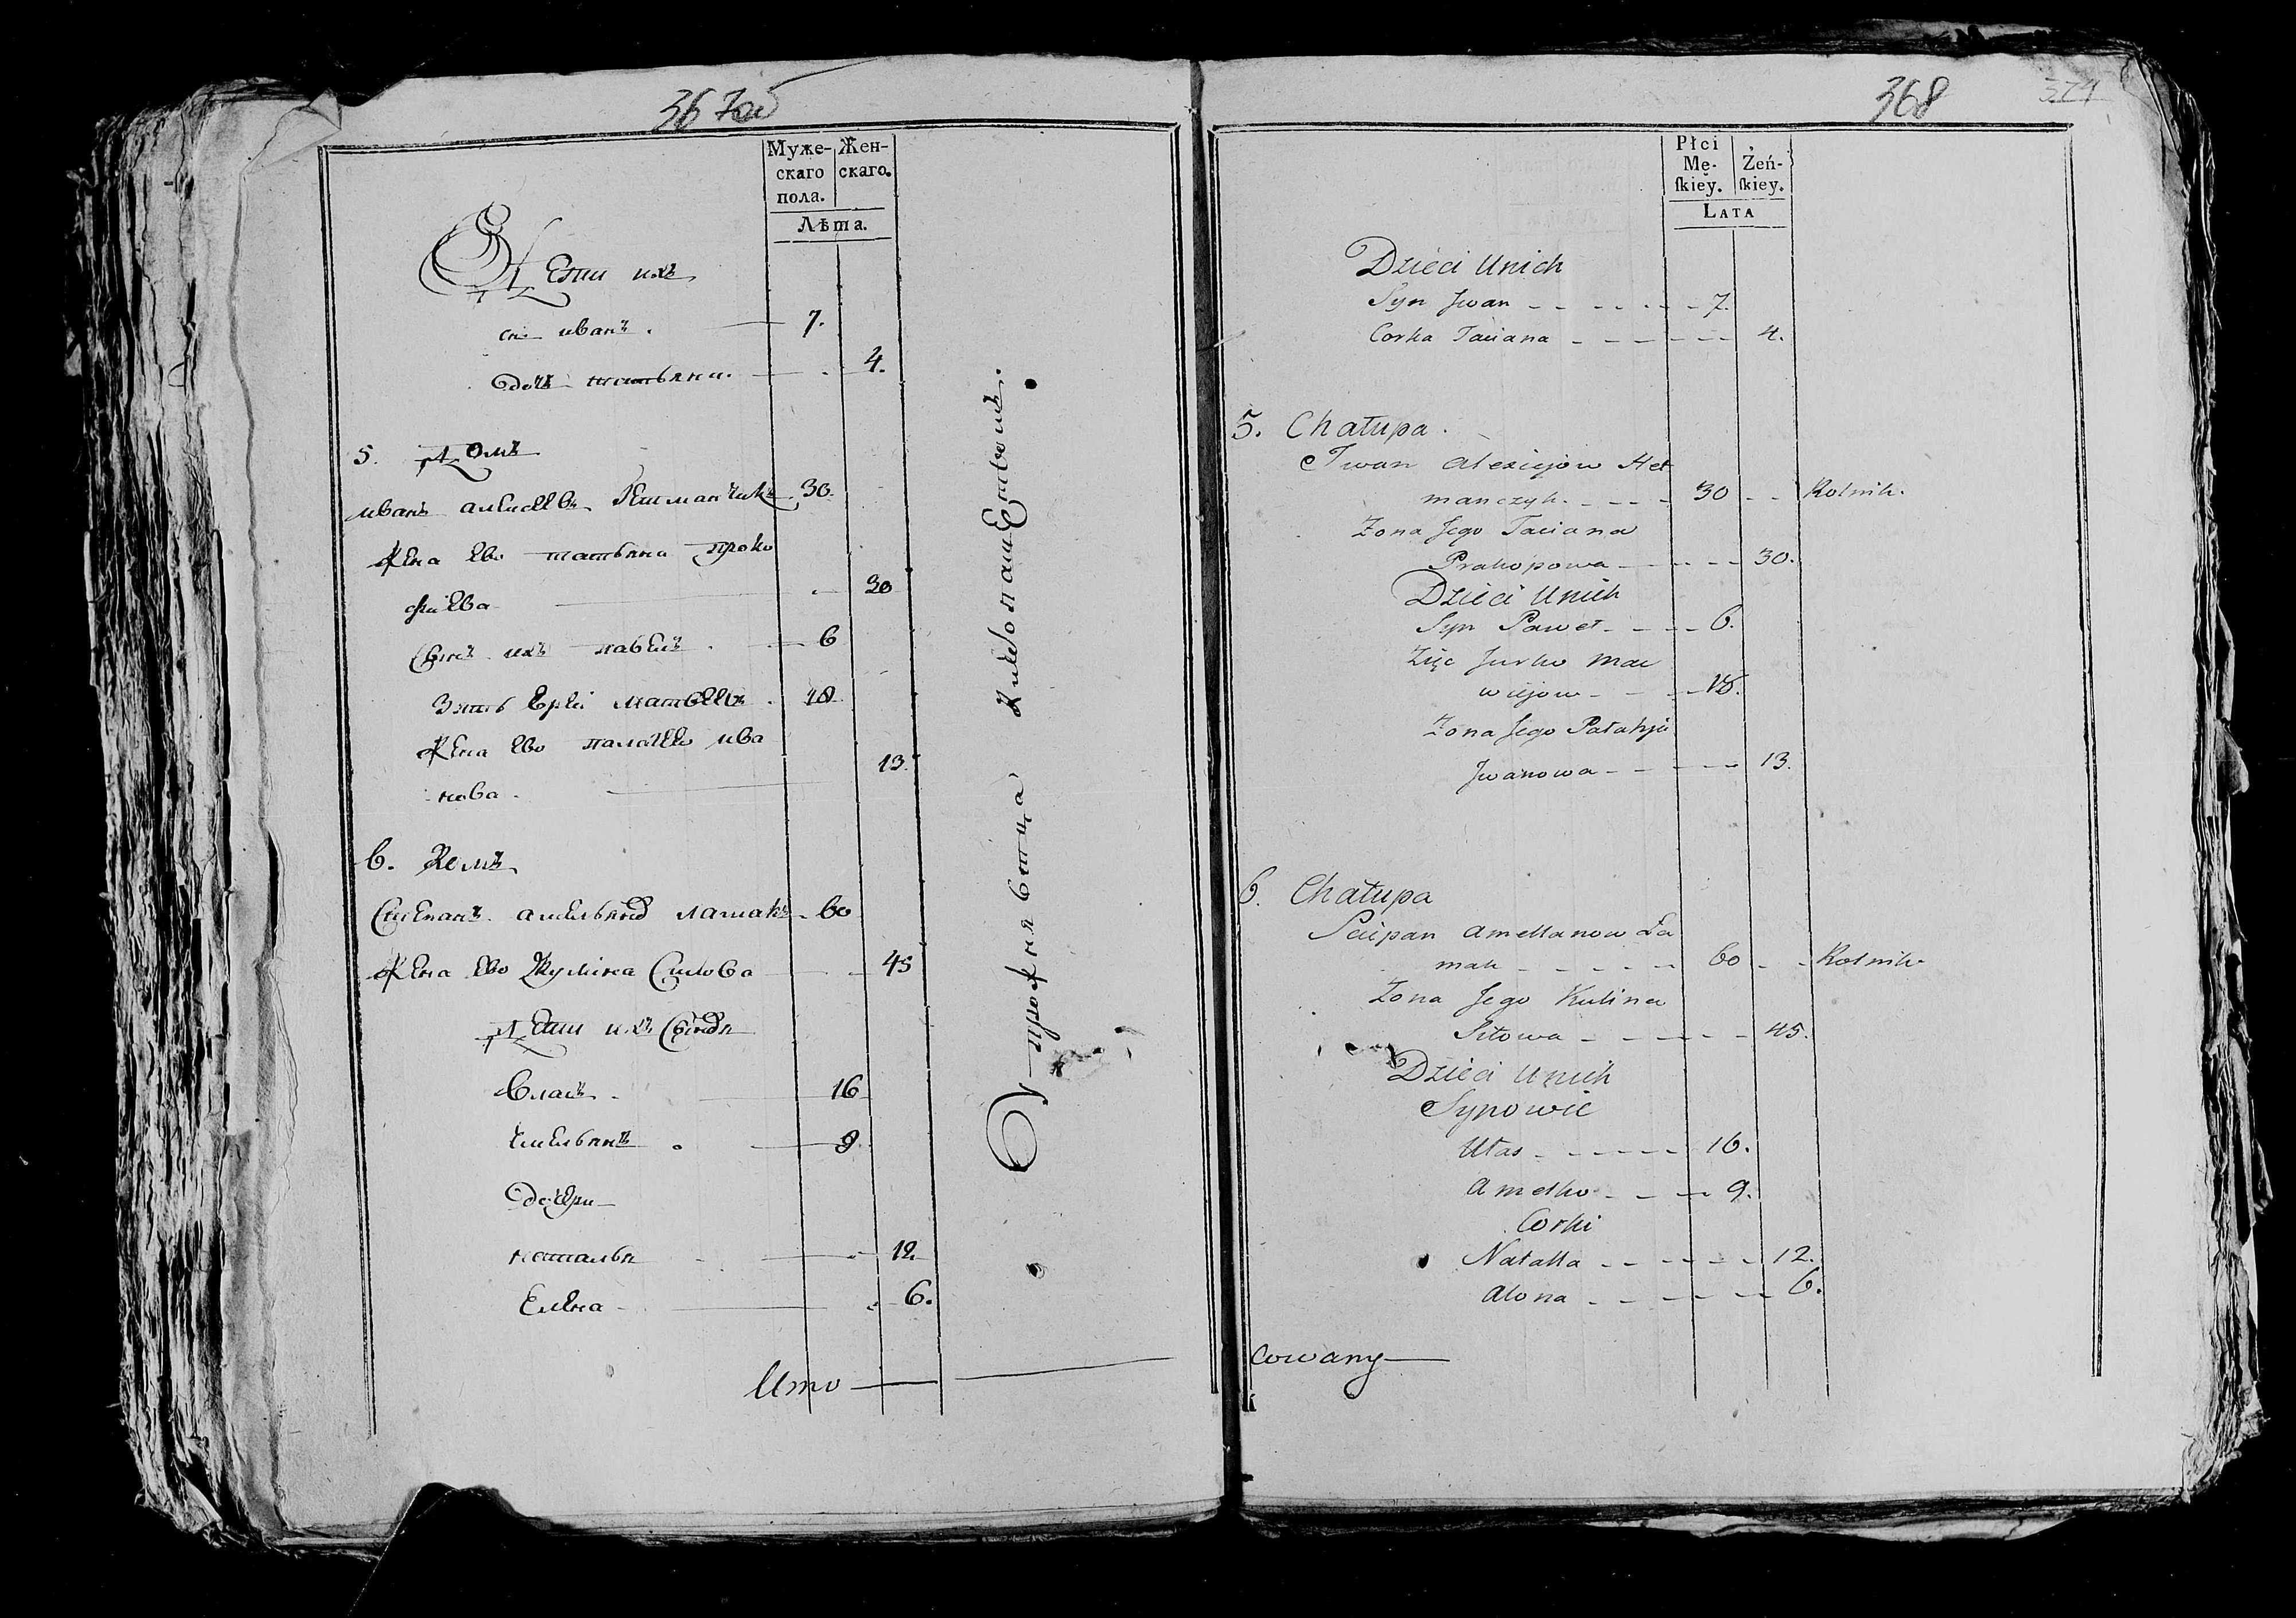 367об
Муже-
скаго
пола.
Жен-
скаго.
Лѣта.
Дети ихъ
снъ иванъ. 7.
дочь татьяна. 4.
5. Домъ
иванъ алексеевъ Гетманчикъ 30.
жена ево татьяна проко
фиева 30
Сынъ ихъ павелъ 6
Зять Ерей матвеевъ 18.
жена ево палагея ива
нова 13.
6. Домъ
Степанъ амельянов ламакъ 60
жена ево Акулина Силова 45
Дети ихъ Сыновя
власъ 16
Емельянъ 9.
дочери
наталья 12
Елена 6.
Что
368
374
Płci
Mę-
ſkiey.
Żeń-
ſkiey.
LATA
Dzieci Unich
Syn Jwan 7.
Corka Taciana 4.
5. Chałupa.
Jwan Alexiejow Het
manczyk. 30 Rolnik.
Zona Jego Taciana
Prakopowa 30.
Dzieci Unich
Syn Paweł 6.
Zięc Jurko Mac
wiejow 18.
Zona Jego Pałahja
Jwanowa 13.
6. Chałupa
Sciepan Amellanow Ła
mak 60 Rolnik
Zona Jego Kulina
Siłowa 45.
Dzieci Unich
Synowie
Ułas 16.
Amelko 9.
Corki
Natalla 12.
Alona 6.
cowany